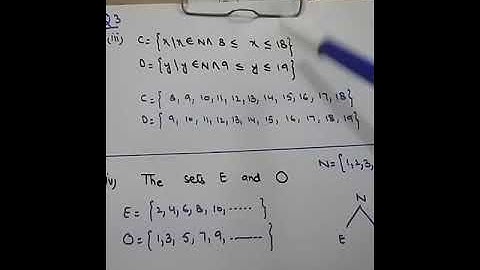 Q3
(iii) C = {x|x ∈ N ∧ 8 ≤ x ≤ 18}
D = {y|y ∈ N ∧ 9 ≤ y ≤ 19}
C = { 8, 9, 10, 11, 12, 13, 14, 15, 16, 17, 18}
D = { 9, 10, 11, 12, 13, 14, 15, 16, 17, 18, 19}
iv) The sets E and O
N = {1,2,3,
E = {2, 4, 6, 8, 10, ...... }
O = {1, 3, 5, 7, 9, ........ }
N
E